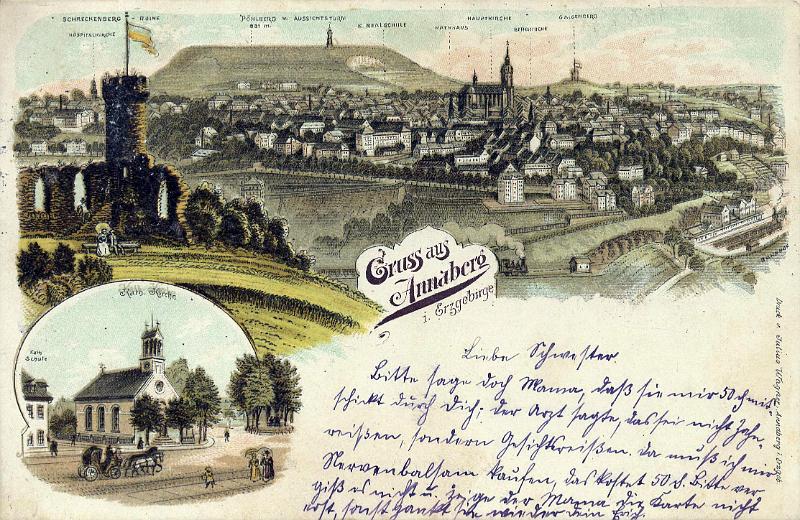 SCHRECKENBERG RUINE
HOSPITALKIRCHE
PÖHLBERG M. AUSSICHTSTURM
831 m.
K. REALSCHULE
RATHHAUS
HAUPTKIRCHE
BERGKIRCHE
GALGENBERG
Gruss aus
Annaberg
i. Erzgebirge
Kath. Kirche
Kath.
Schule
Druck v. Julius Annaberg i. Erzgeb.
Liebe Schwester
Bitte sage doch Mama, daß sie mir 50 ₰ mit-
schickt durch Dich; der Arzt sagte, das sei nicht Zahn-
reißen, sondern Gesichtsreißen. Da muß ich mir
Nervenbalsam kaufen, das kostet 50 ₰. Bitte ver
giß es nicht u. zeige der Mama die Karte nicht
erst, sonst zankt sie wieder dein